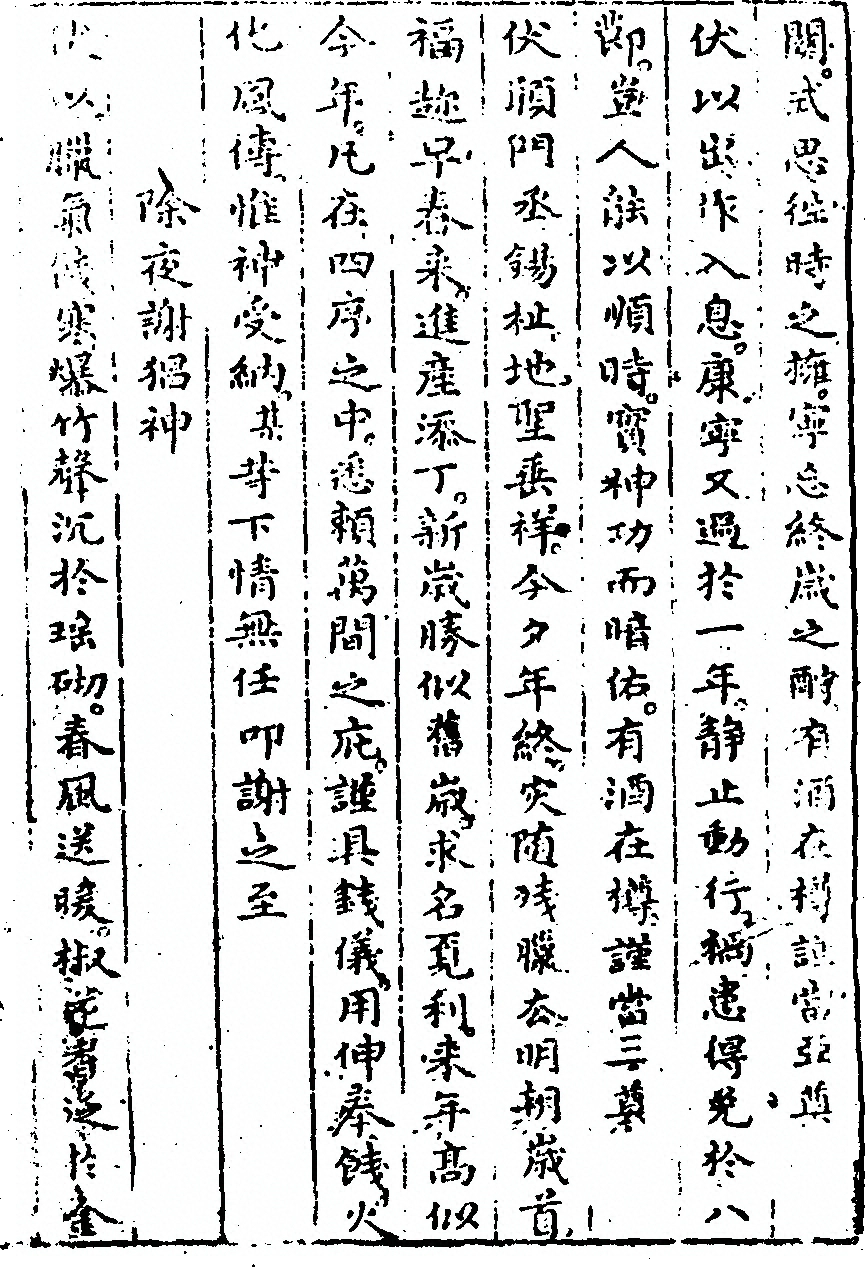 關。式思徃時之擁。寕忘終歲之酧有酒在樽謹當亞奠
伏以出作入息。康寜又過於一年。静止動行，禍患得免於八
節。豈人能以順時。實神功而暗佑。有酒在樽。謹當三奠
伏願門丞錫祉，地聖垂祥。今夕年終，灾随残臘去，明朝歲首，
福趂早春来，進産添丁。新歲勝似舊歲，求名覓利。来年髙似
今年。凢在四序之中。悉頼萬間之庇，謹具錢儀，用伸奉餞，火
化風傳，惟神受納，某等下情無任叩謝之至
除夜謝猖神
伏以臘氣傳寒爆竹聲沉於瑶砌。春風送暖，椒花香泛於金